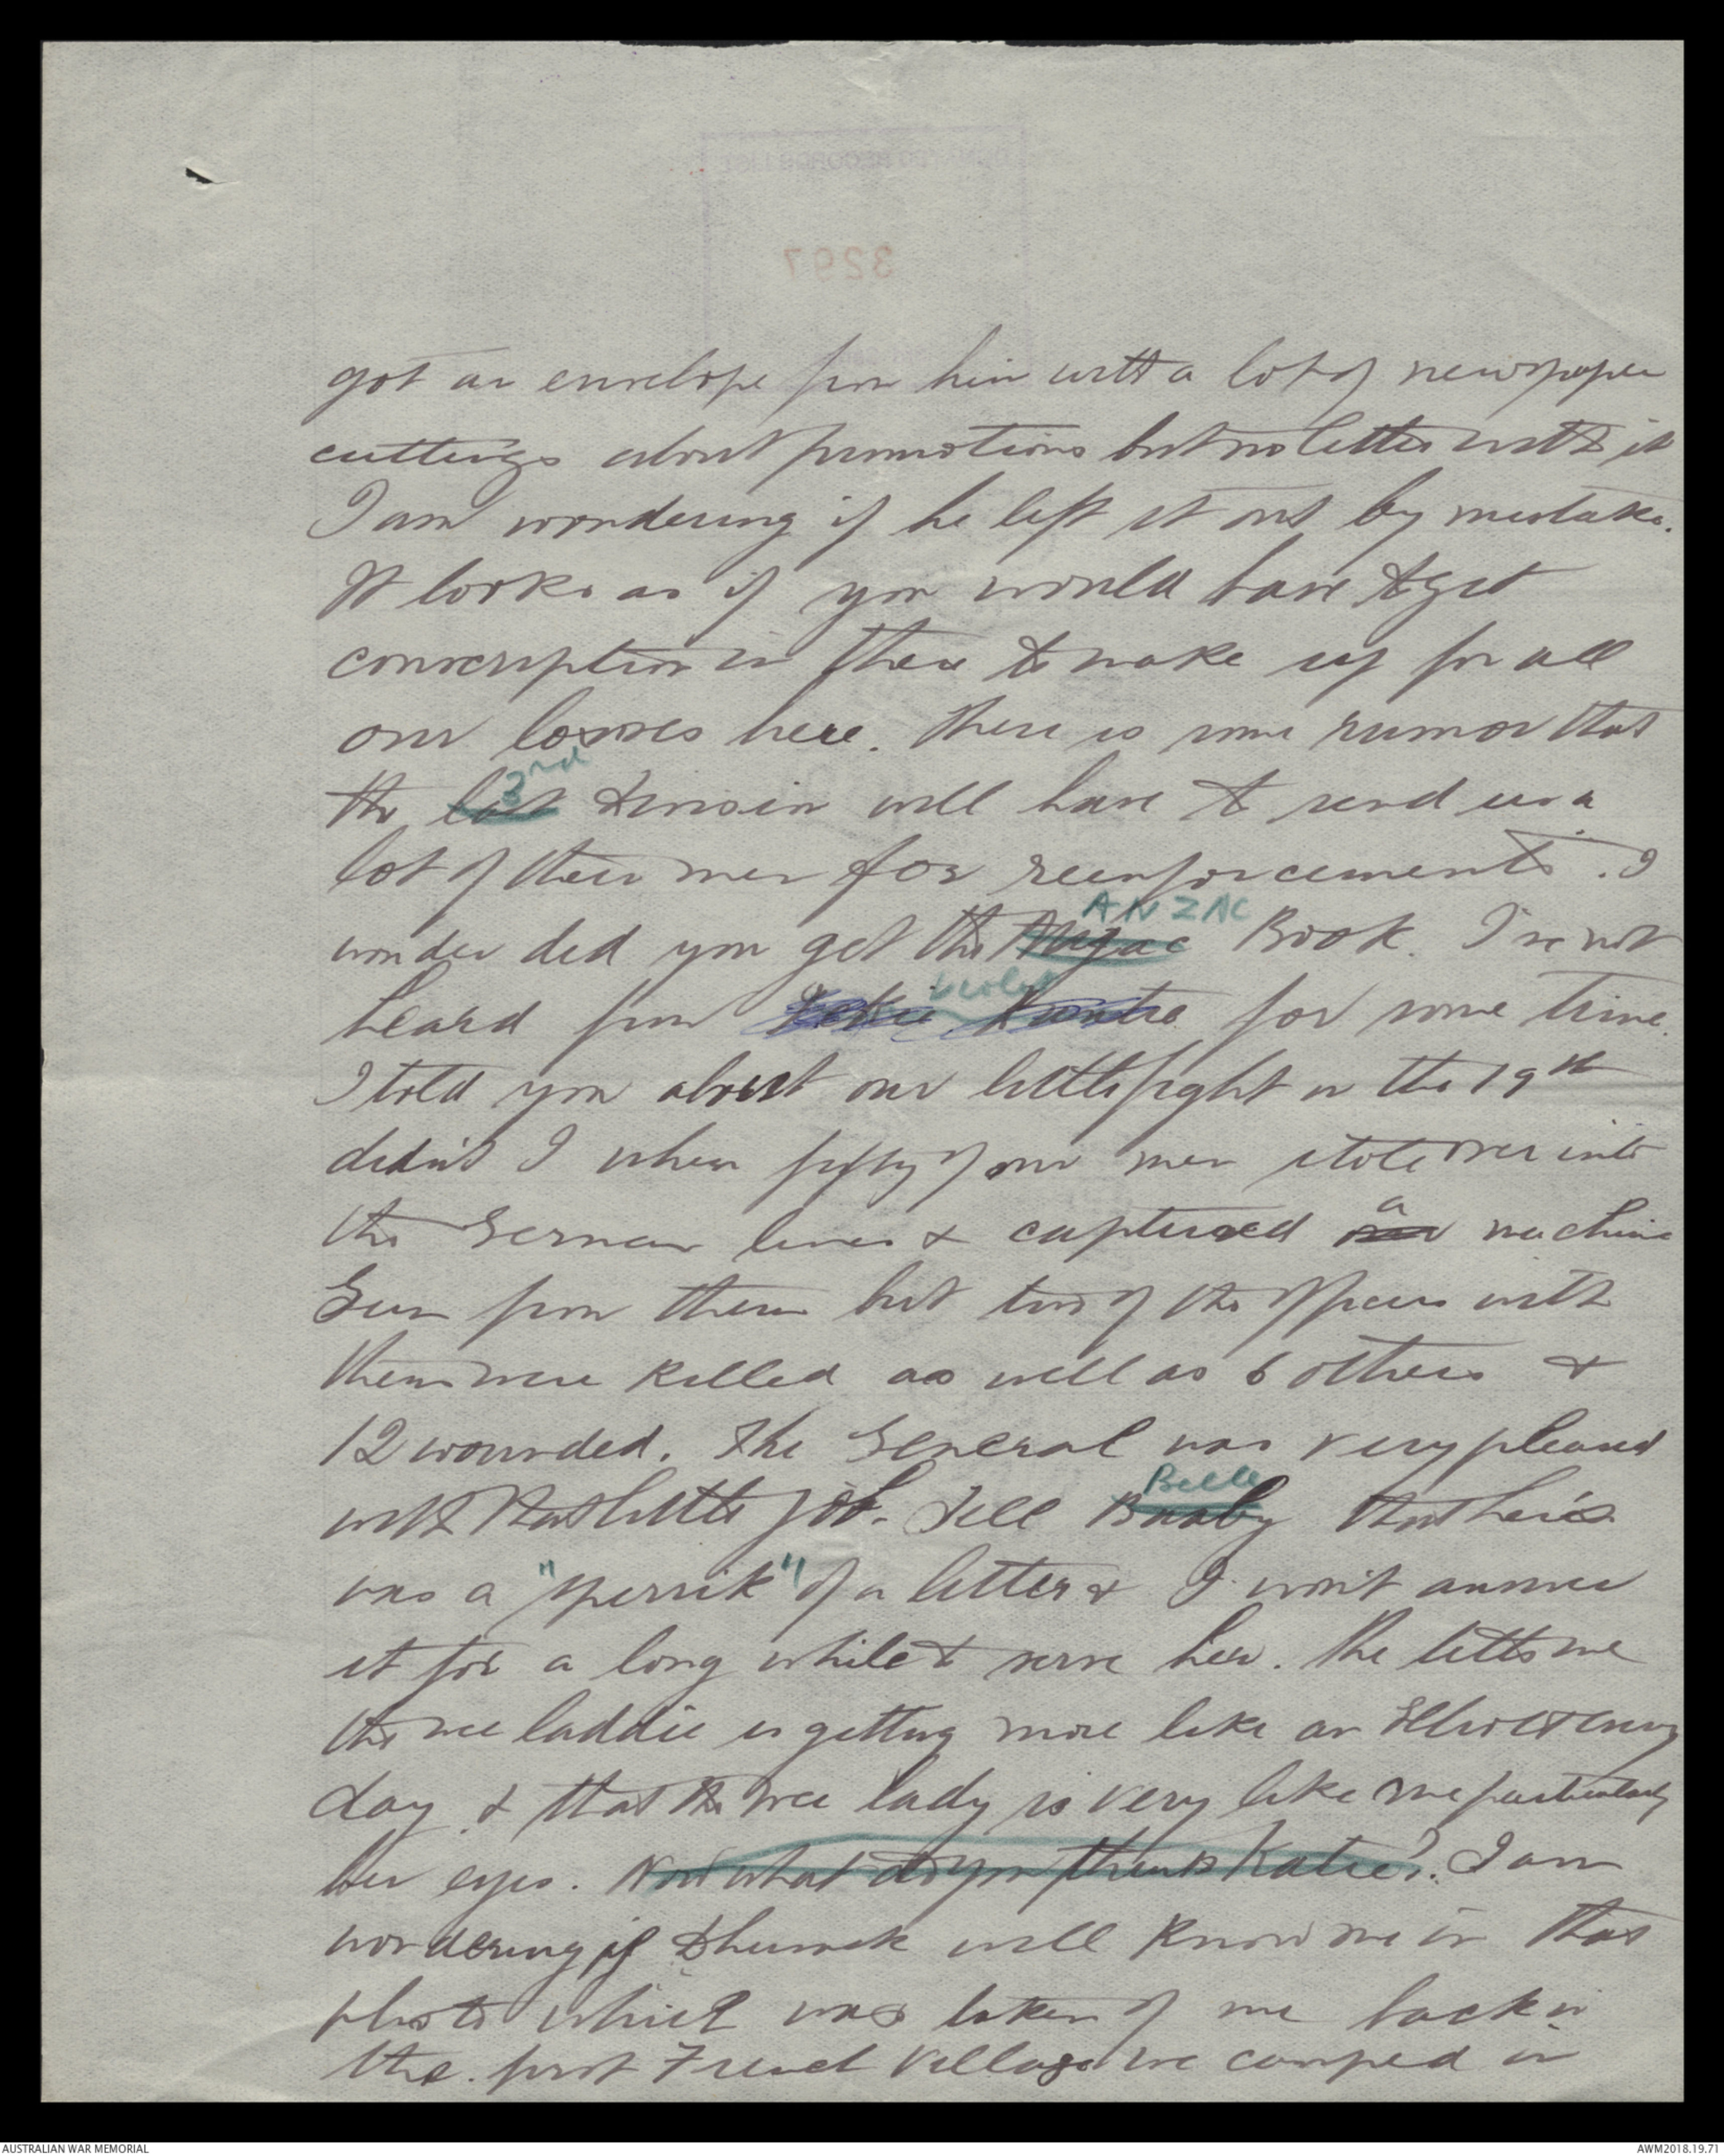 3297
got an envelope from him with a lot of newspaper
cuttings about promotions but no letter with it
I am wondering if he left it out by mistake.
It looks as if you would have to get
conscription in there to make up for all
our losses here. There is some rumor that
3rd
the last Division will have to send us a
lot of their men for reinforcements. I
ANZAC
wonder did you get the Anzac Book. I've not
heard from for some time.
I told you about our little fight on the 19th
didn't I when fifty of our men stole over into
a
the German lines & captured machine
Gun from them but two of the officers with
them were killed as well as 6 others &
12 wounded. The General was very pleased
Belle
with that little job. Tell Baaby that her's
was a "sperrit" of a letter & I won't answer
it for a long while to serve her. She tells me
the wee laddie is getting more like an Elliott every
day & that the wee lady is very like me particularly
her eyes. Now what do you think Katie?. I am
wondering if will know me in that
photo which was taken of me back in
the first French village we camped in
AUSTRALIAN WAR MEMORIAL
AWM2018.19.71